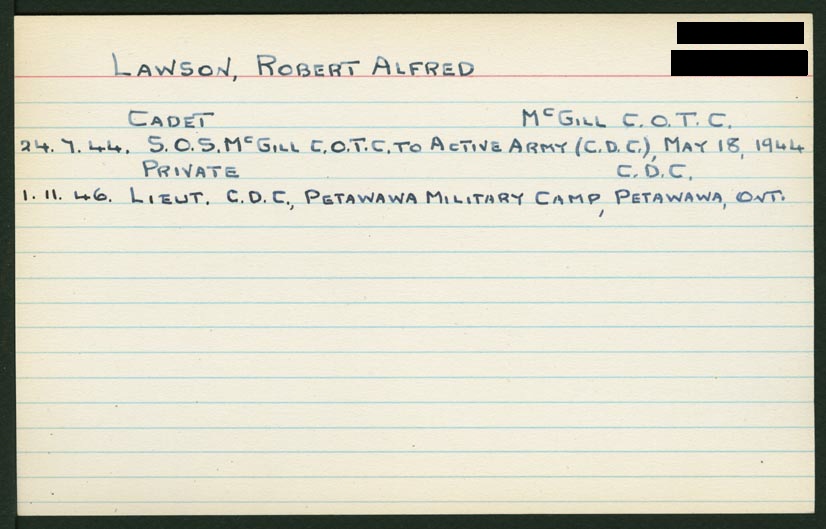 LAWSON, ROBERT ALFRED
CADET McGILL C.O.T.C.
24.7.44. S.O.S. McGILL C.O.T.C. TO ACTIVE ARMY (C.D.C.), MAY 18, 1944
PRIVATE C.D.C.
1.11.46. LIEUT. C.D.C., PETAWAWA MILITARY CAMP, PETAWAWA, ONT.